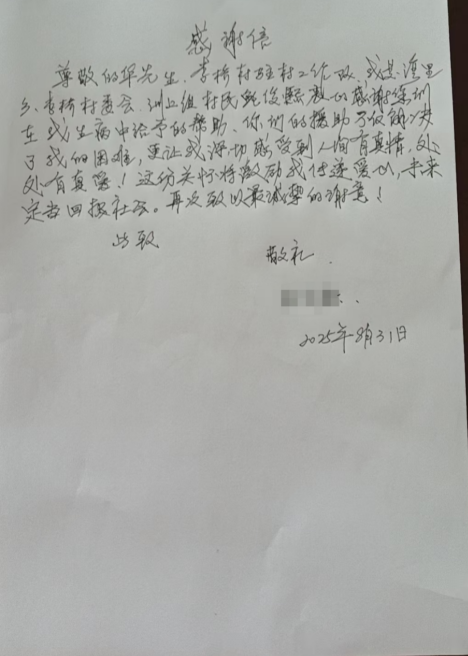 感谢信
尊敬的华先生、李桥村驻村工作队、我是
乡、李桥村委会、组村民 衷心的感谢你们
在我生病中给予的帮助、你们的援助不仅解决
了我的困难，更让我深切感受到人间有真情，处
处有真爱！这份关怀将激励我传递爱心，未来
定当回报社会。再次致以最诚挚的谢意！
此致
敬礼
2025年8月31日